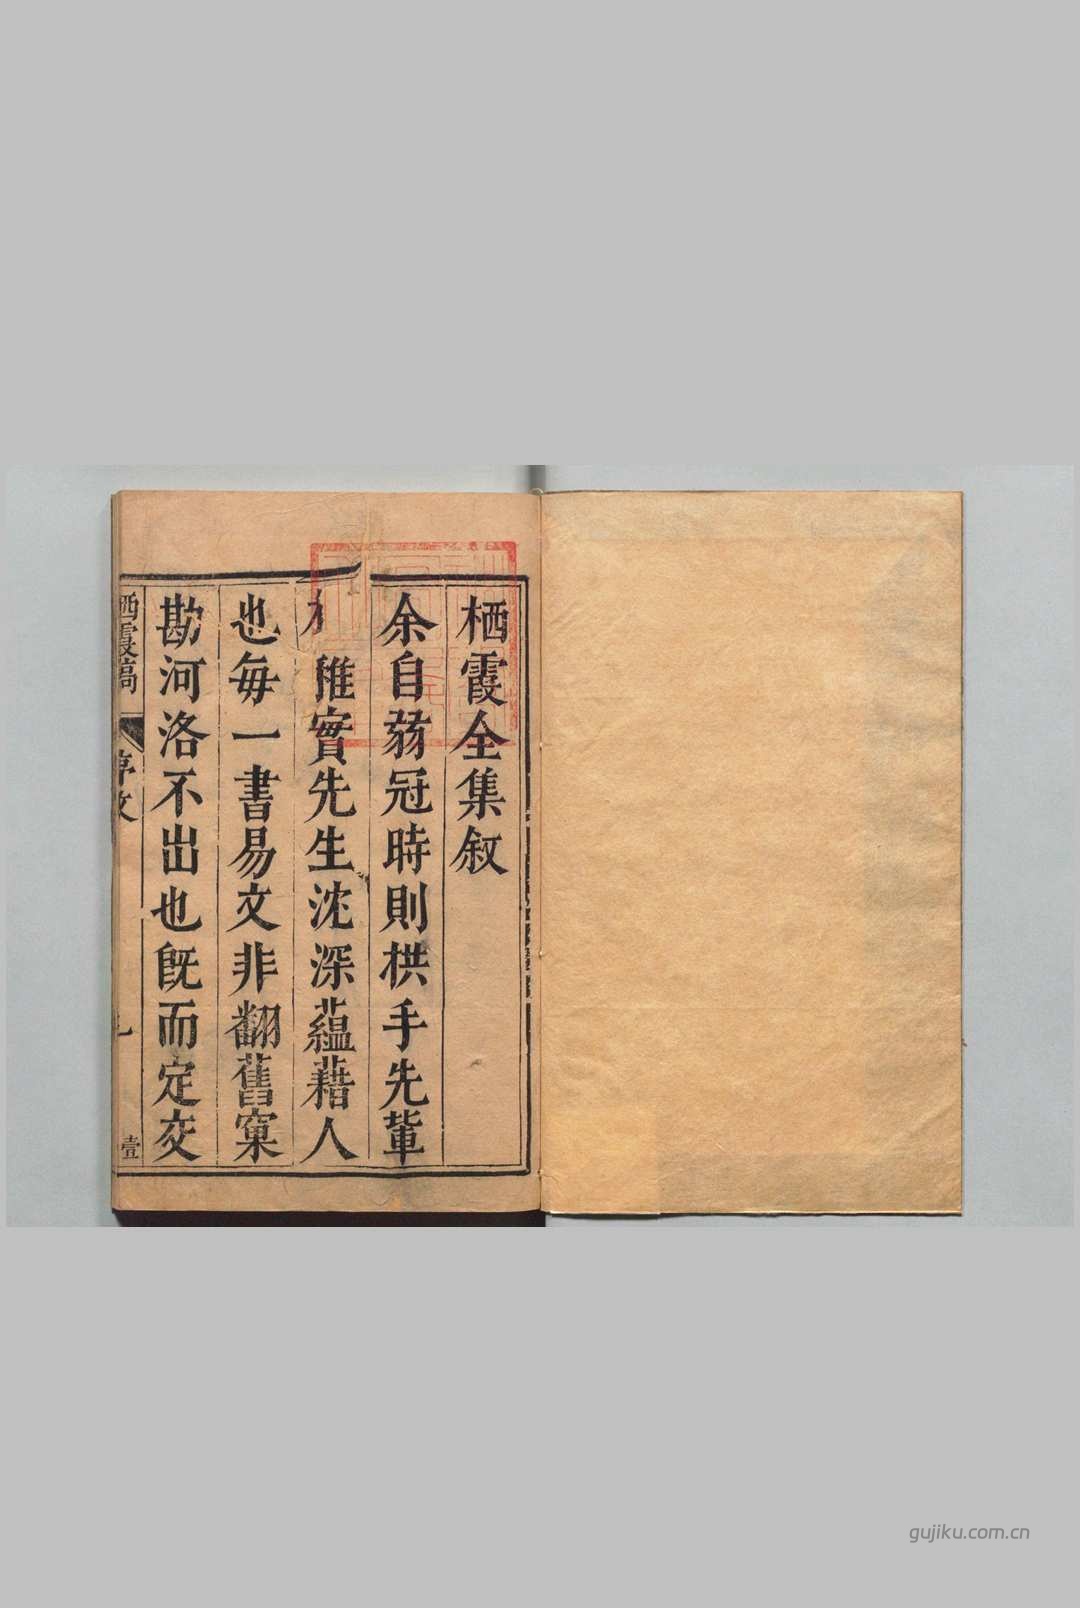 栖霞全集敘
余自弱冠時則栱手先輩
稚實先生沈深蘊藉人
也每一書易文非翻舊窠
勘河洛不出也旣而定交
栖霞稿 序文 壹
gujiku.com.cn